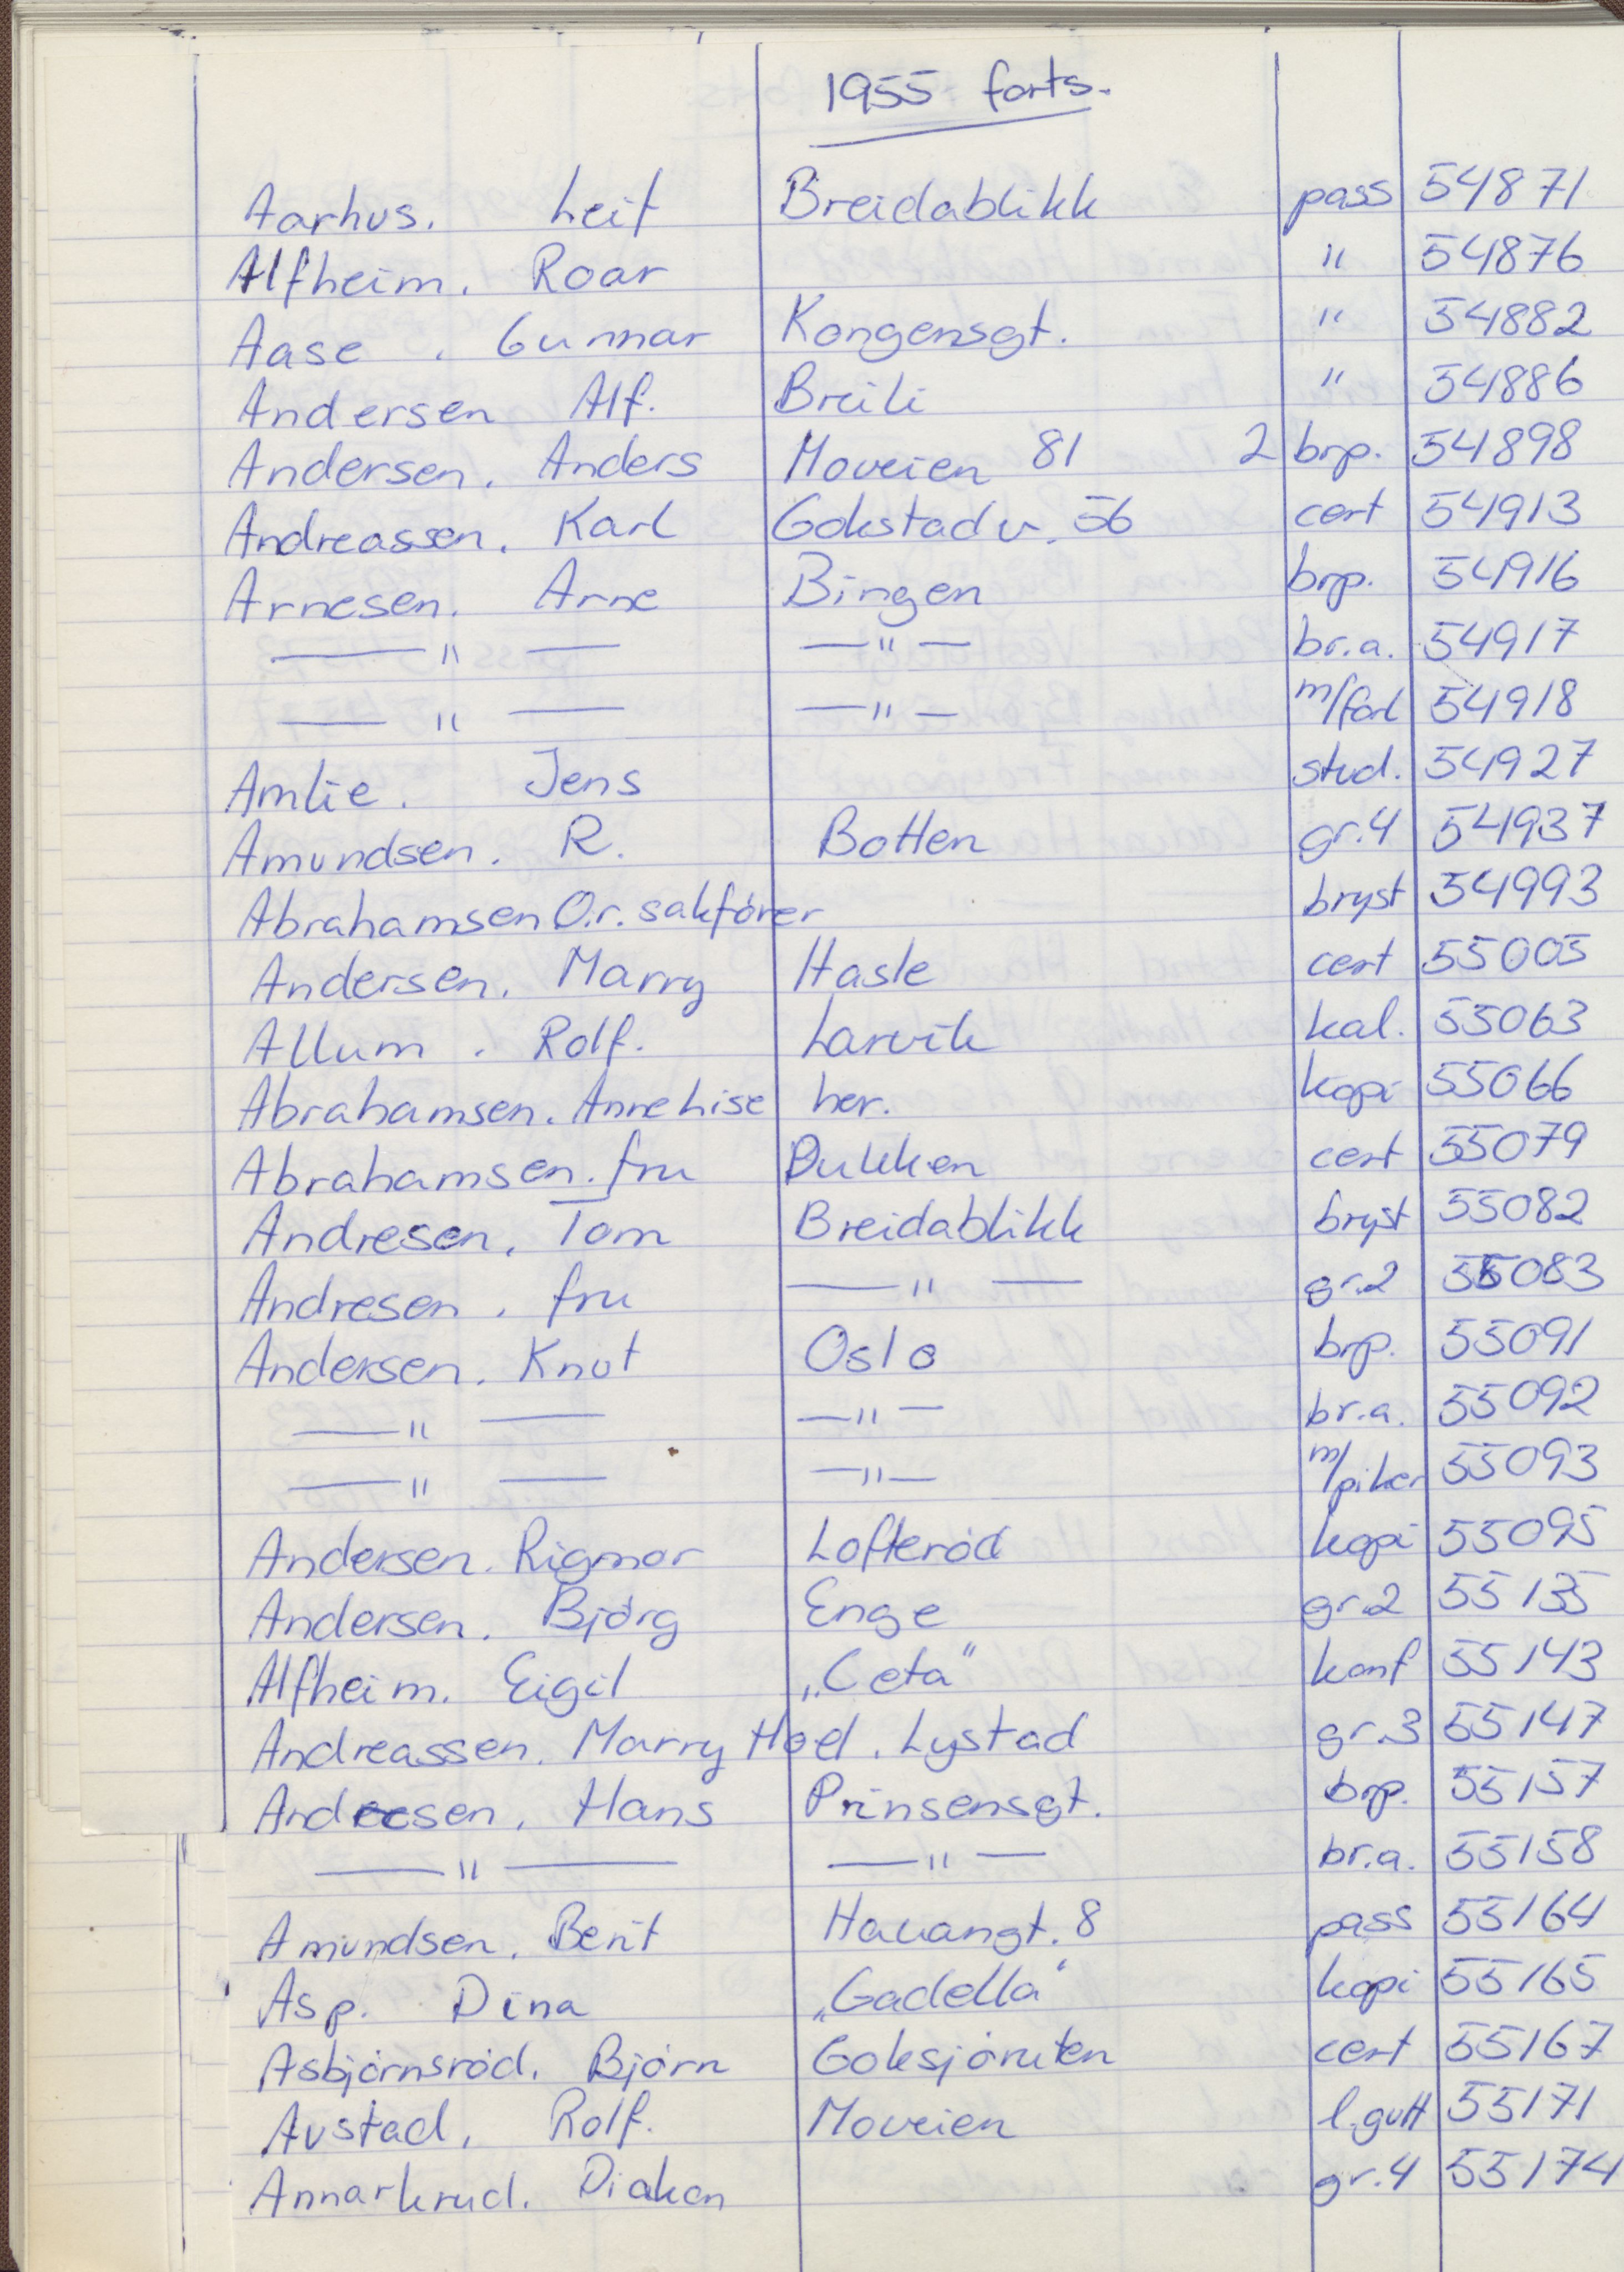 1955 forts.
Aarhus. Leif Breidablikk pass 54871
Alfheim. Roar " 54876
Aase . Gunnar Kongensgt. " 54882
Andersen Alf. Breili " 54886
Andersen. Anders Moveien 81 2 brp. 54898
Andreassen. Karl Gokstadv. 56 cert 54913
Arnesen. Arne Bingen brp. 54916
— " — — " — br.a. 54917
— " — — " — m/forl 54918
Amlie. Jens stud. 54927
Amundsen. R. Botten gr.4 54937
Abrahamsen O.r. sakfører bryst 54993
Andersen. Marry Hasle cert 55005
Allum . Rolf. Larvik kal. 55063
Abrahamsen. Anne Lise her. kopi 55066
Abrahamsen. fru Dukken cert 55079
Andresen. Tom Breidablikk bryst 55082
Andresen . fru — " — gr.2 55083
Andersen. Knut Oslo brp. 55091
— " — — " — br.a. 55092
— " — — " — m/piker 55093
Andersen. Rigmor Lofterød kopi 55095
Andersen. Bjørg Enge gr.2 55135
Alfheim. Eigil „Ceta" konf 55143
Andreassen. Marry Hoel. Lystad gr.3 55147
Andresen. Hans Prinsensgt. brp. 55157
— " — — " — br.a. 55158
Amundsen. Berit Hauangt. 8 pass 55164
Asp. Dina „Gadella" kopi 55165
Asbjørnsrød. Bjørn Goksjøruten cert 55167
Austad. Rolf. Moveien l.gutt 55171
Annarkrud. Diakon gr.4 55174